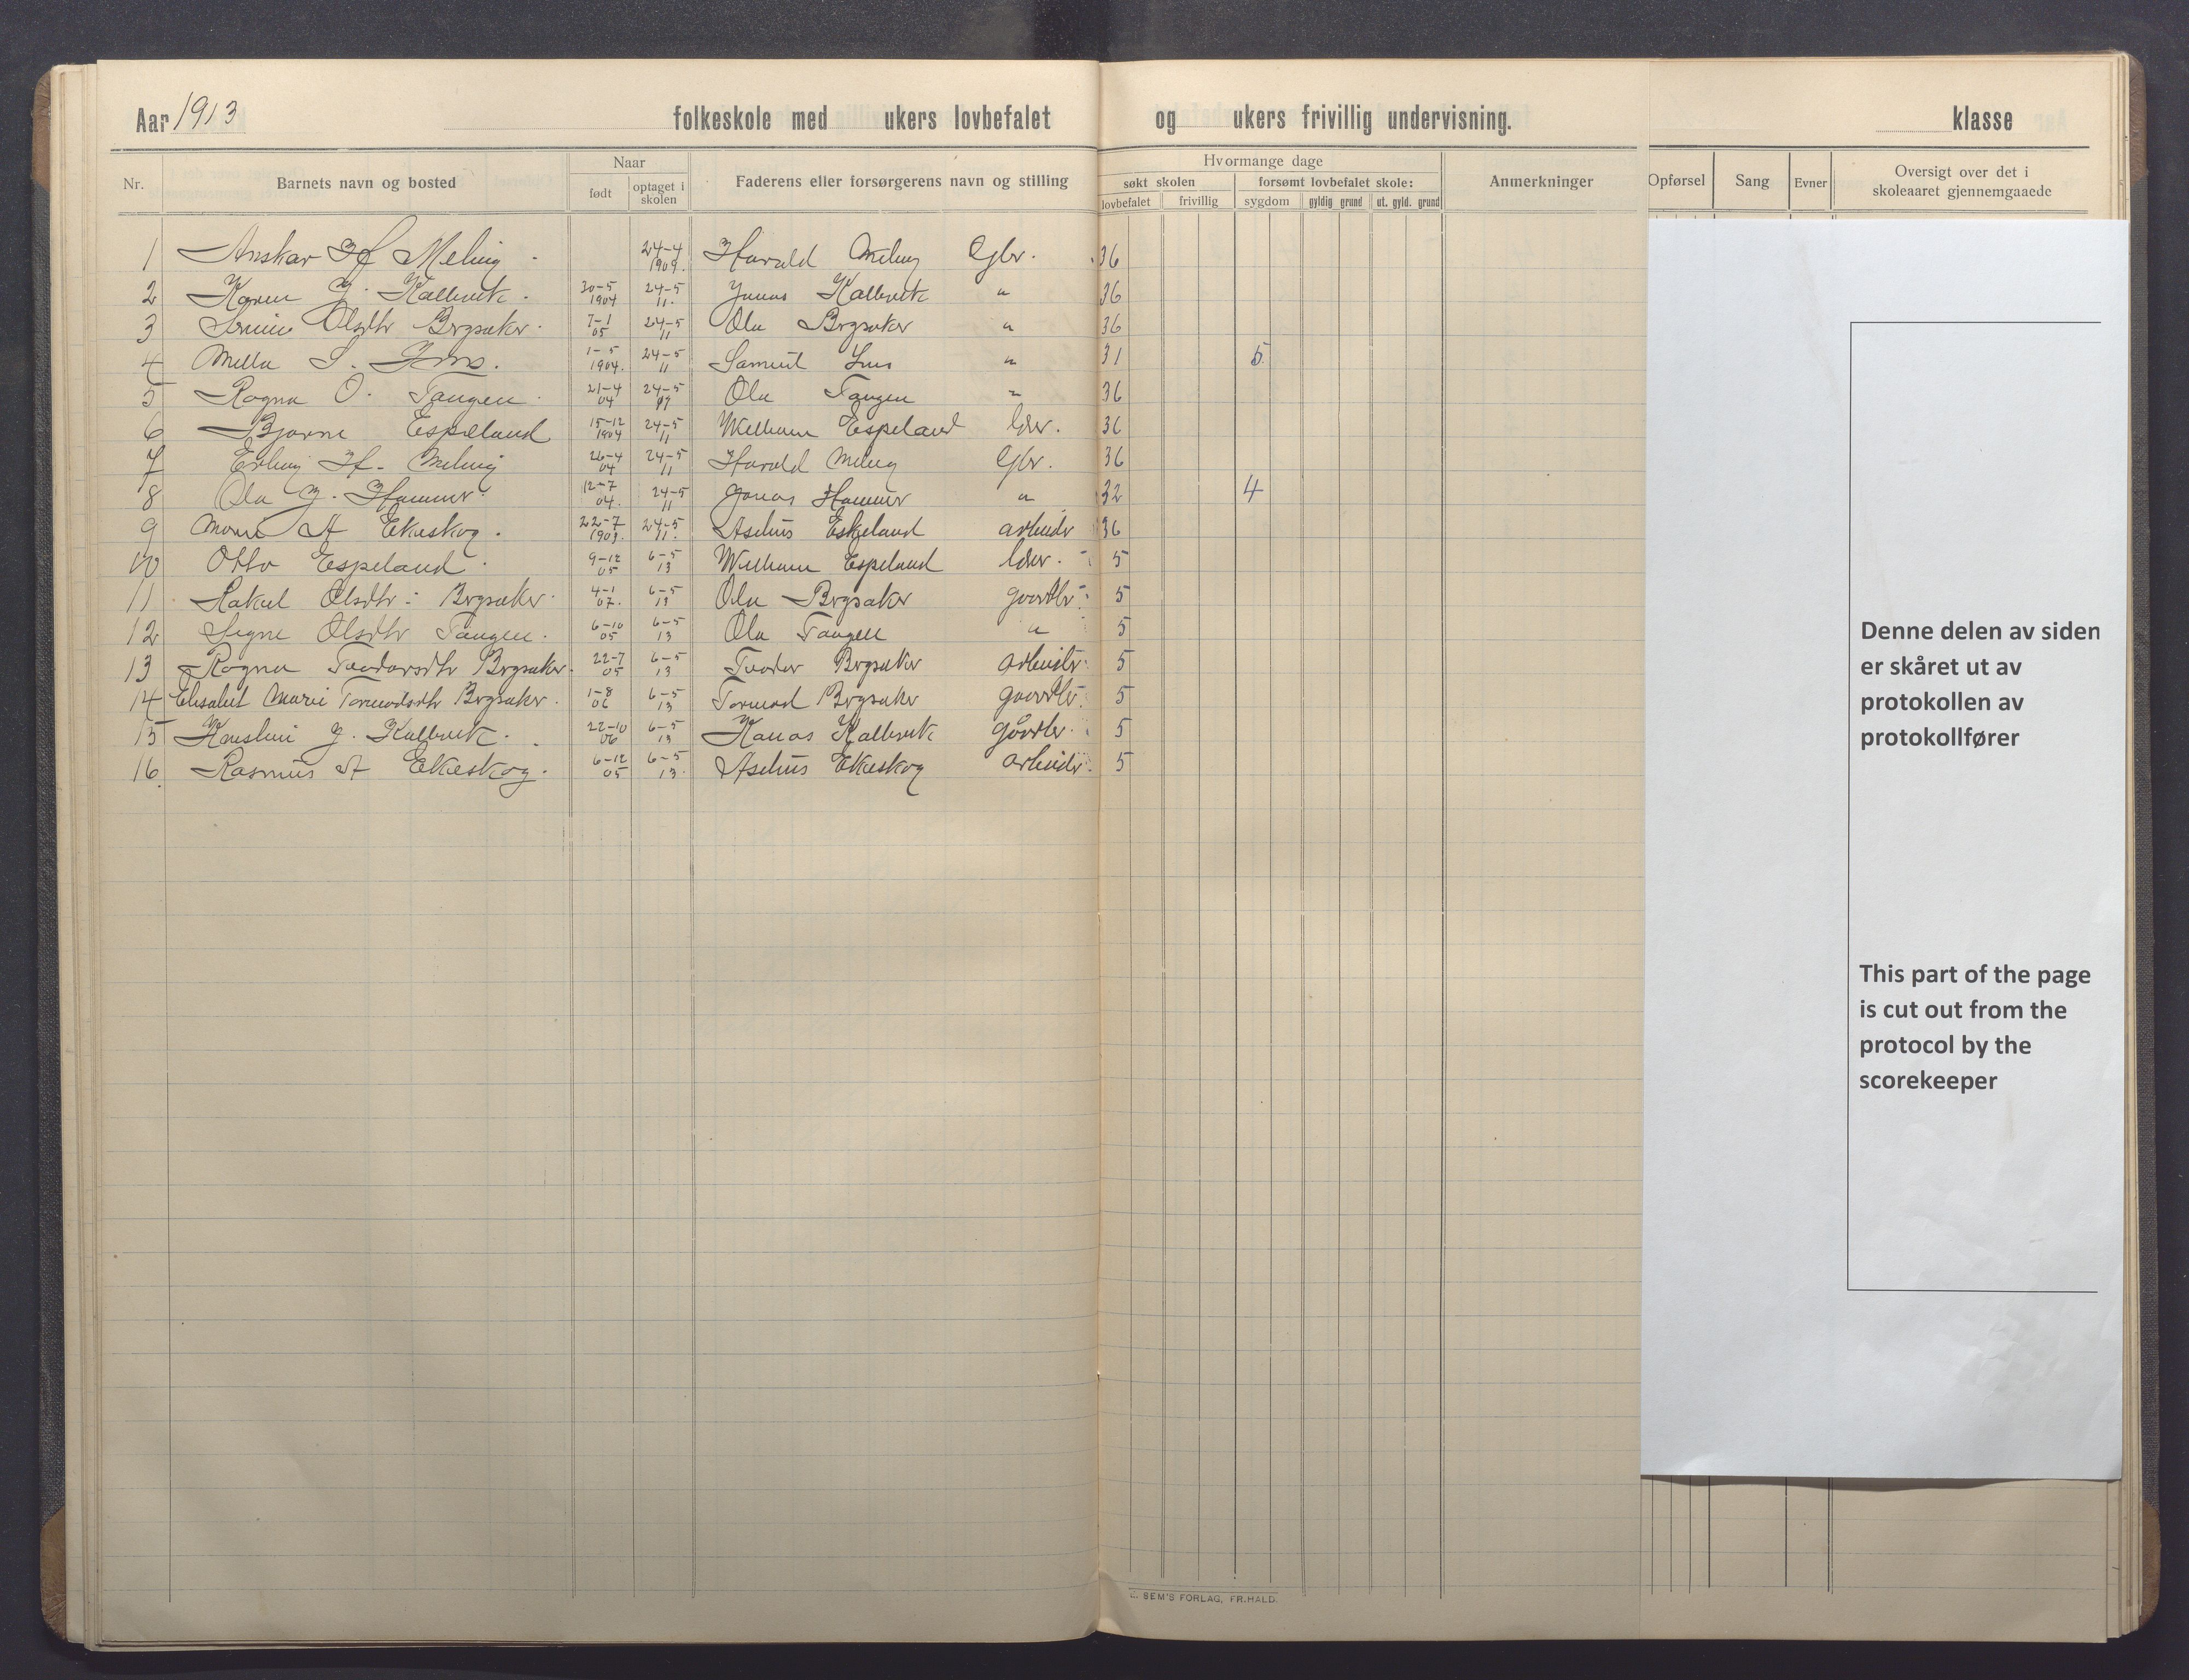 Aar 1913 folkeskole med ukers lovbefalet og ukers frivillig undervisning. klasse
Nr. Barnets navn og bosted Naar født optaget i skolen Faderens eller forsørgerens navn og stilling Hvormange dage søkt skolen lovbefalet frivillig forsømt lovbefalet skole: sygdom gyldig grund ut. gyld. grund Anmerkninger Opførsel Sang Evner Oversigt over det i skoleaaret gjennemgaaede
1 Anskar H Meling 24-4 1909. Harald Meling Gbr. 36
2 Karen J. Kallevik. 30-5 1904 24-5 11. Jonas Kallevik " 36
3 Olsdtr Bogsaker. 7-1 05 24-5 11 Ola Bogsaker " 36
4 Mella S. 1-5 1904. 24-5 11 Samuel " 31 5
5 Ragna O. Tangen. 21-4 04 24-5 Ola Tangen " 36
6 Bjarne Espeland 15-12 1904 24-5 11 Welhem Espeland lær. 36
7 Erling H. Meling 26-4 04 24-5 11 Harald Meling Gbr. 36
8 Ola J. Hammer. 12-7 04. 24-5 11 Jonas Hammer " 32 4
9 A Ekeskog. 22-7 1903. 24-5 11. Eskeland arbeidr 36
10 Otto Espeland. 9-12 05 6-5 13 Welhem Espeland lær. 5
11 Rakel Olsdtr: Bogsaker. 4-1 07. 6-5 13 Ola Bogsaker 5
12 Signe Olsdtr Tangen. 6-10 05 6-5 13 Ola Tangen " 5
13 Ragna Teodorsdtr Bogsaker. 22-7 05 6-5 13 Teodor Bogsaker arbeidr. 5
14 Elisabet Marie Tormodsdtr Bogsaker. 1-8 06 6-5 13 Tormod Bogsaker 5
15 J. Kallevik. 22-10 06 6-5 13 Kallevik 5
16. Rasmus A Ekeskog. 6-12 05 6-5 13. Ekeskog arbeidr. 5
Denne delen av siden
er skåret ut av
protokollen av
protokollfører
This part of the page
is cut out from the
protocol by the
scorekeeper
SEM'S FORLAG, FR.HALD.